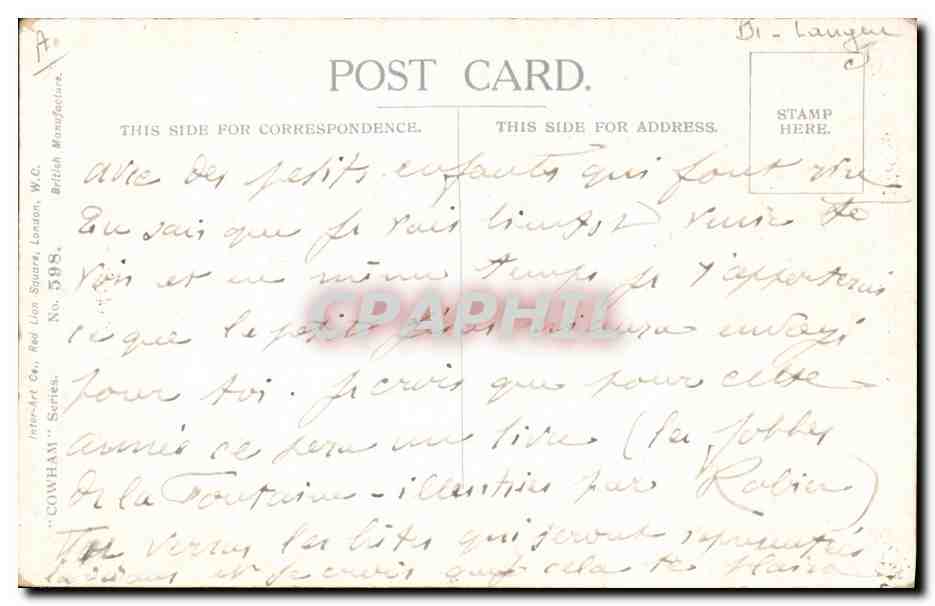 A.
Bi-Langue
POST CARD.
THIS SIDE FOR CORRESPONDENCE.
THIS SIDE FOR ADDRESS.
STAMP
HERE.
Inter-Art Co., Red Lion Square, London, W.C.
British Manufacture.
"COWHAM" Series. No. 598.
avec des petits enfants qui font rire
tu sais que je vais bientôt venir te
voir et en même temps je t'apporterai
ce que le petit Jésus m'aura envoyé
pour toi. Je crois que pour cette
année ce sera un livre (les fables
de la Fontaine - illustrées par Rabier)
Tu verras les bêtes qui seront représentées
et je crois que cela te plaira
CPARHTI